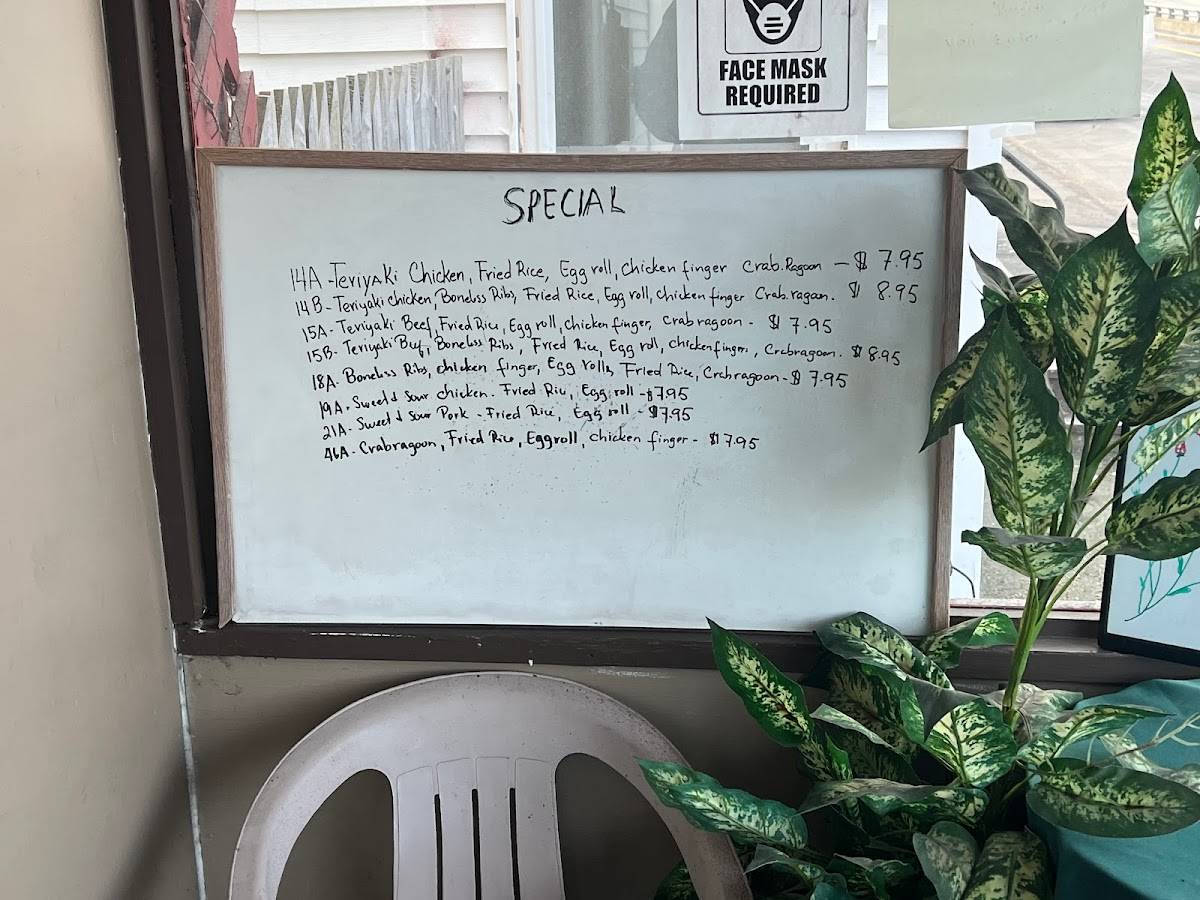 FACE MASK
REQUIRED
SPECIAL
14A-Teriyaki Chicken, Fried Rice, Egg roll, chicken finger Crab.Ragoon - $ 7.95
14B-Teriyaki chicken, Boneless Ribs, Fried Rice, Egg roll, chicken finger Crab.ragoon. $ 8.95
15A-Teriyaki Beef, Fried Rice, Egg roll, chicken finger, Crabragoon - $ 7.95
15B-Teriyaki Beef, Boneless Ribs, Fried Rice, Egg roll, chicken finger, Crabragoon. $ 8.95
18A. Boneless Ribs, chicken finger, Egg rolls, Fried Rice, Crabragoon - $ 7.95
19A. Sweet & Sour chicken. Fried Rice, Egg roll - $7.95
21A- Sweet & Sour Pork - Fried Rice, Egg roll - $7.95
46A- Crabragoon, Fried Rice, Eggroll, chicken finger - $7.95